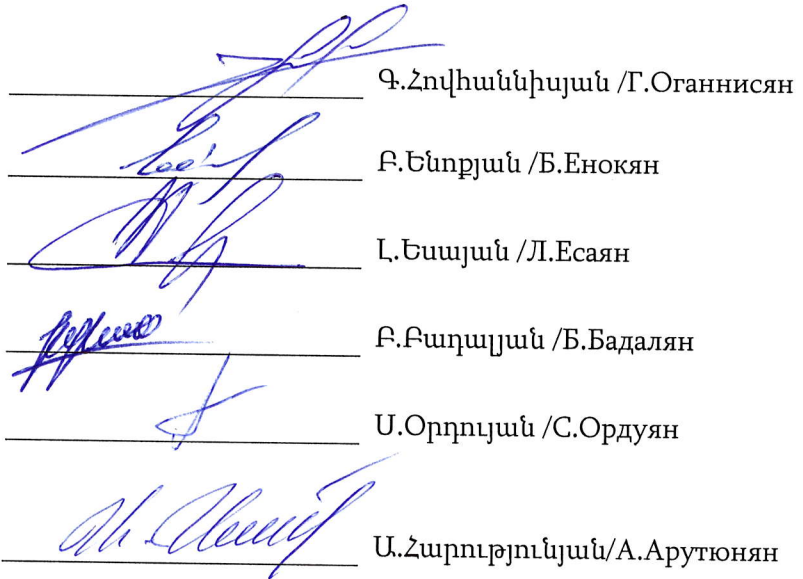 Գ.Հովհաննիսյան /Г.Оганнисян
Բ.Ենոքյան /Б.Енокян
Լ.Եսայան /Л.Есаян
Բ.Բադալյան /Б.Бадалян
Ս.Օրդույան /С.Ордуян
Ա.Հարությունյան/А.Арутюнян